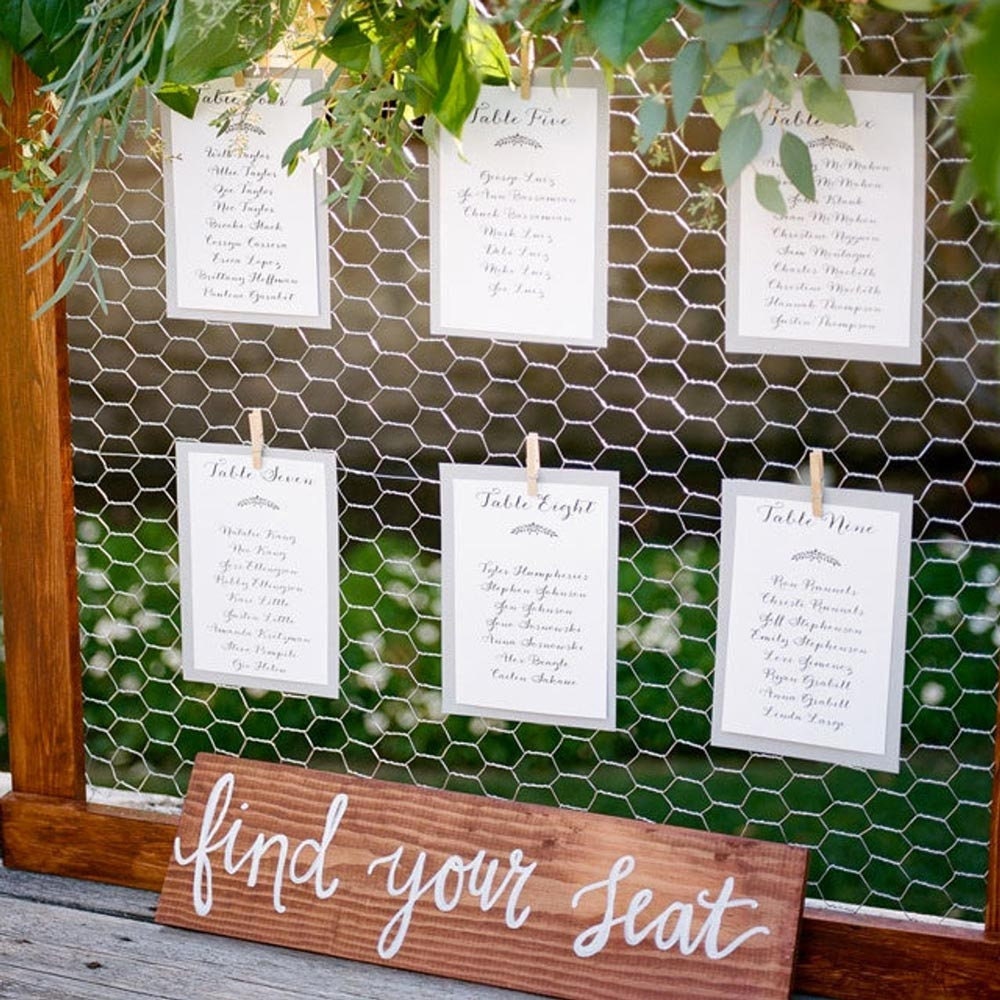 Table Four
Taylor
Allie Taylor
Zoe Taylor
Noe Taylor
Brooke Stack
Corryn Carrera
Erica Lopez
Brittany Hoffman
Pauline Garabit
Table Five
George Luiz
Jo Ann Bassamian
Chuck Bassamian
Mark Luiz
Debi Luiz
Mike Luiz
Joe Luiz
Table Six
McMahon
McMahon
John Klunk
Sean McMahon
Christine Nguyen
Sam Montague
Charles Macbeth
Christine Macbeth
Hannah Thompson
Justin Thompson
Table Seven
Natalie Kang
Noe Kang
Jess Ellingson
Robby Ellingson
Kari Little
Justin Little
Amanda Kreitzman
Steve Pompili
Gio Helou
Table Eight
Tyler Humpheries
Stephen Johnson
Jen Johnson
Jane Sosnowski
Anna Sosnowski
Alex Beagle
Caitlin Sakane
Table Nine
Ron Runnels
Christi Runnels
Jeff Stephenson
Emily Stephenson
Lexi Jimenez
Ryan Grabill
Anna Grabill
Linda Large
find your seat